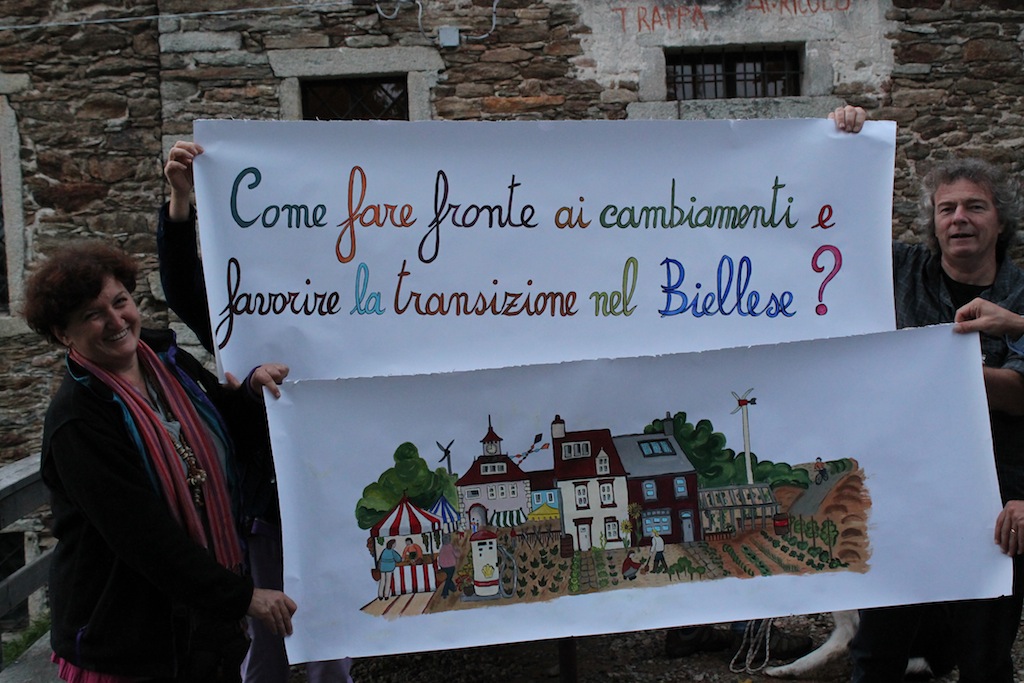 TRAPPA AGRICOLO
Come fare fronte ai cambiamenti e
favorire la transizione nel Biellese ?